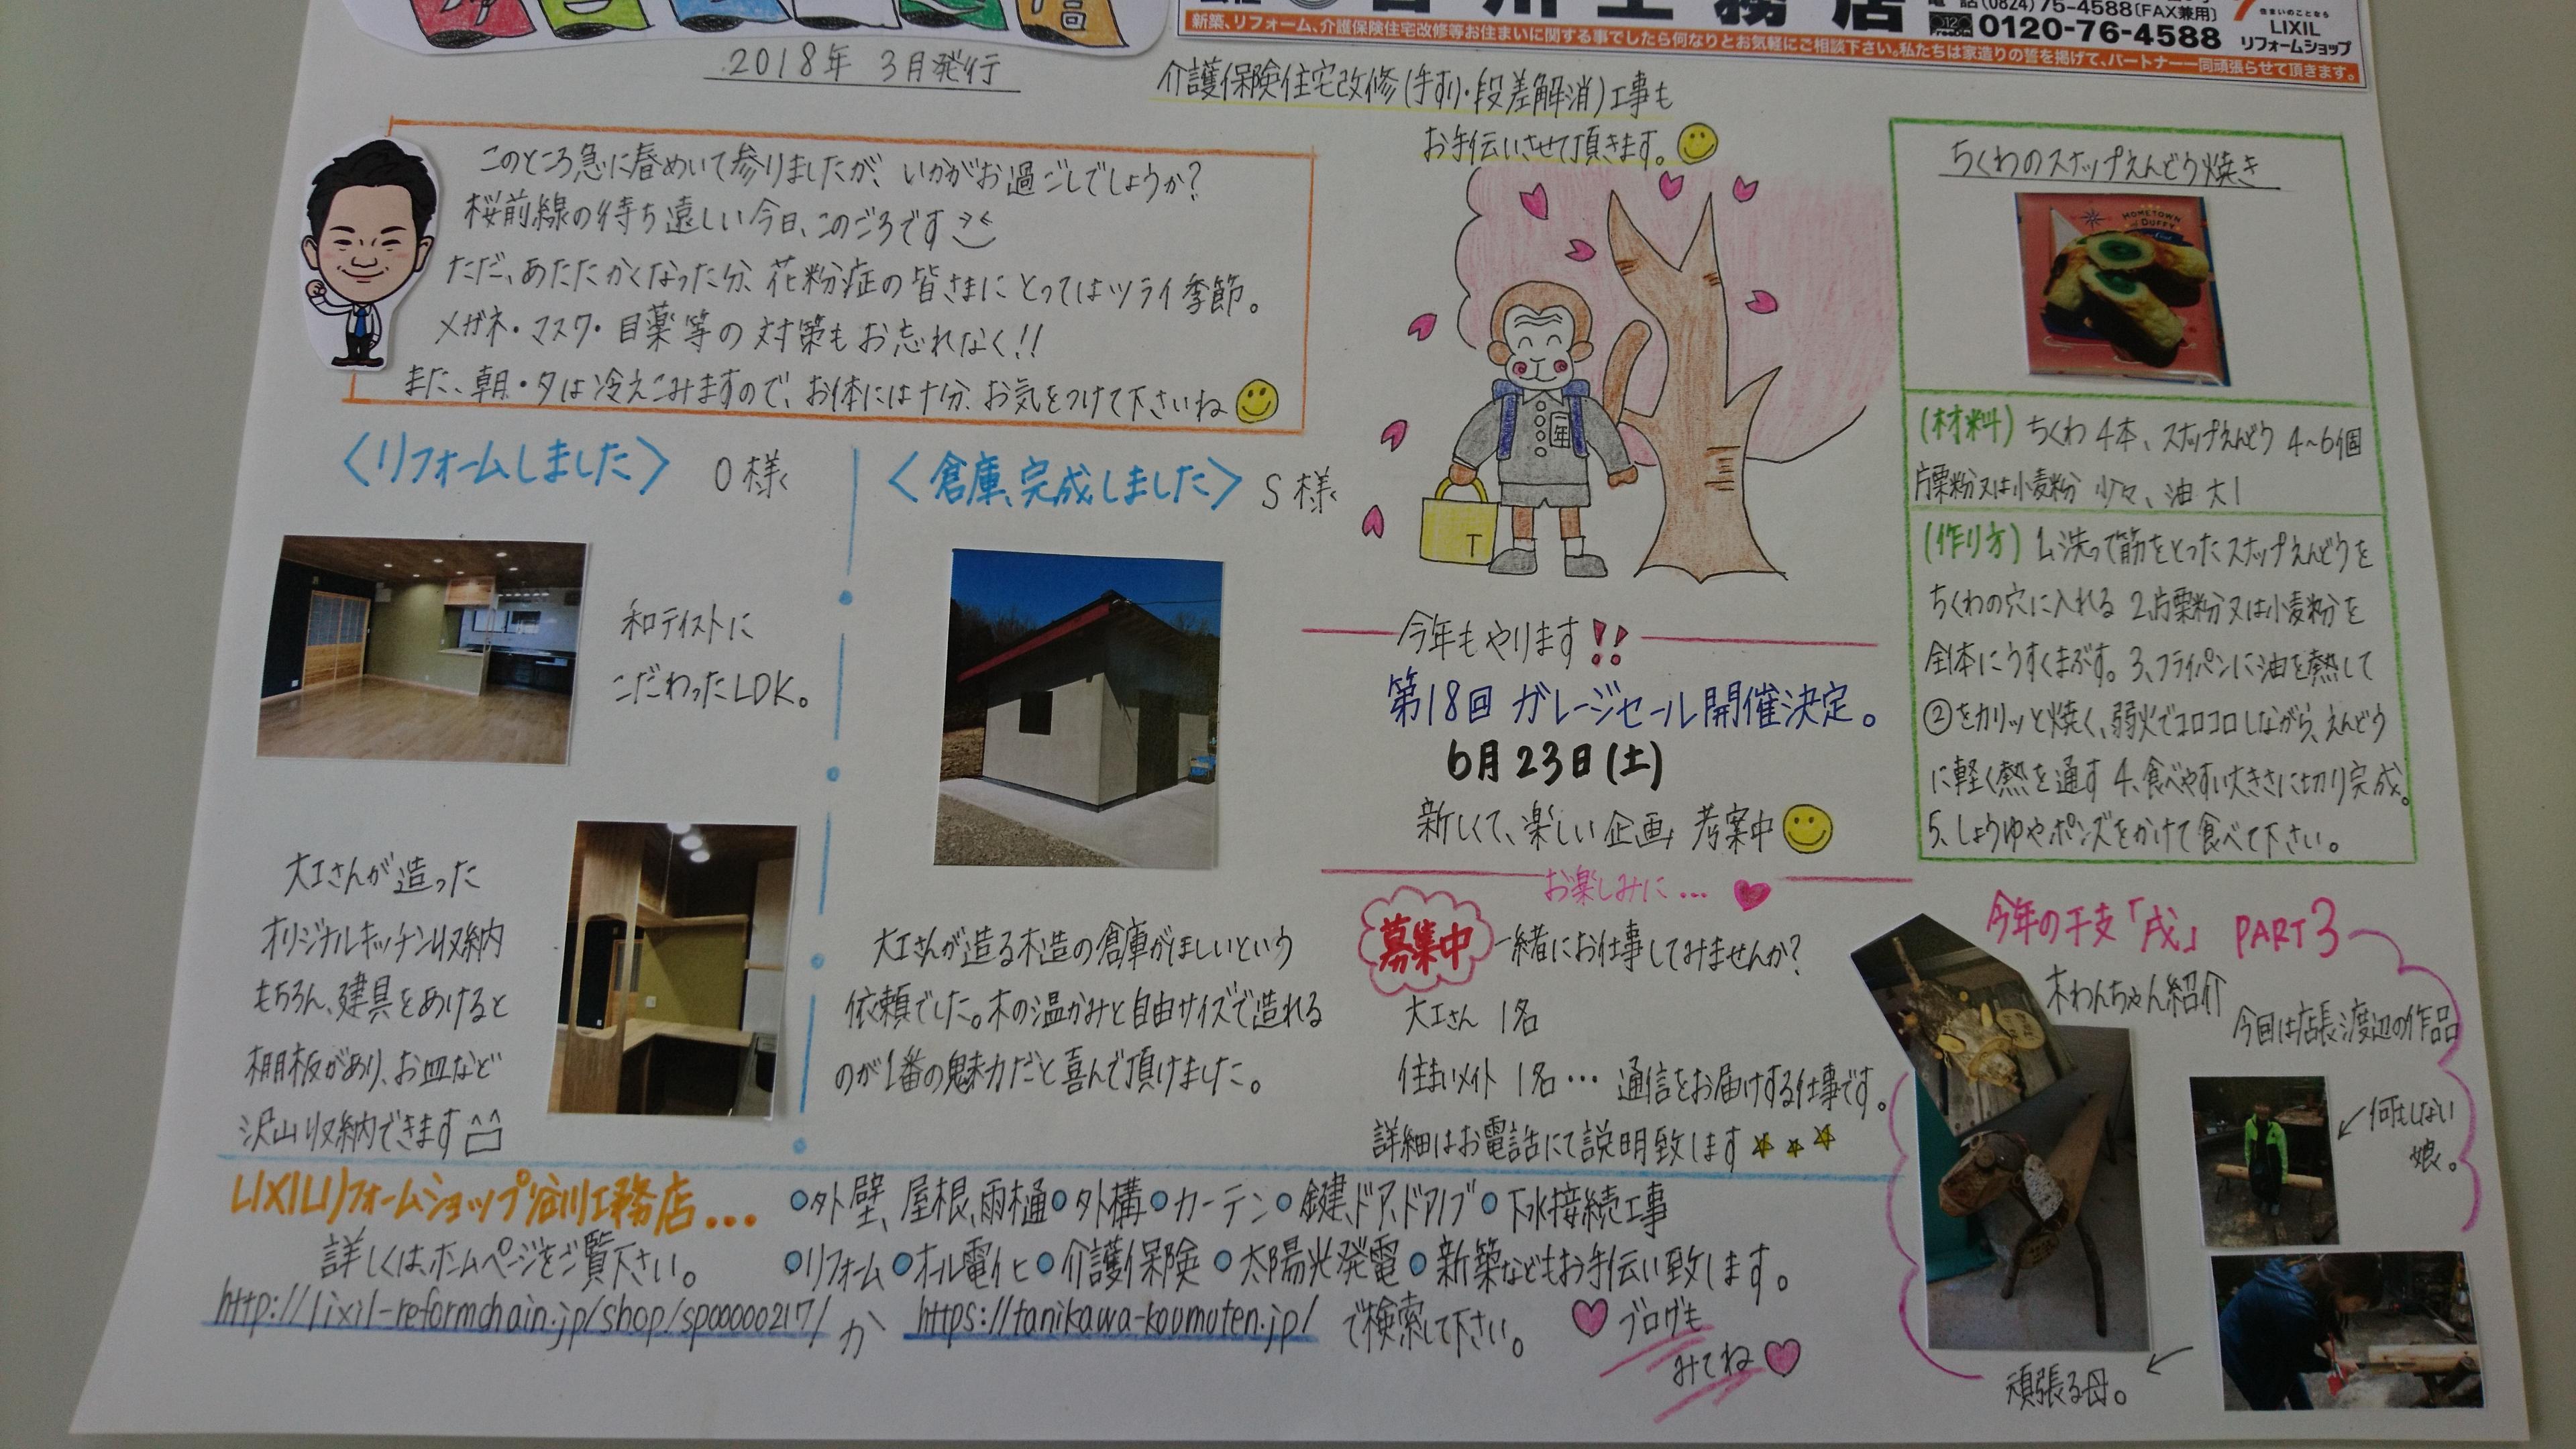 工務店
電話(0824)75-4588(FAX兼用)
0120-76-4588
住まいのことなら
LIXIL
リフォームショップ
新築、リフォーム、介護保険住宅改修等お住まいに関する事でしたら何なりとお気軽にご相談下さい。私たちは家造りの誓を掲げて、パートナー一同頑張らせて頂きます。
2018年 3月発行
介護保険住宅改修(手すり・段差解消)工事も
お手伝いさせて頂きます。
このところ急に春めいて参りましたが、いかがお過ごしでしょうか?
桜前線の待ち遠しい今日、このごろです
ただ、あたたかくなった分、花粉症の皆さまにとってはツライ季節。
メガネ・マスク・目薬等の対策もお忘れなく!!
また、朝・夕は冷えこみますので、お体には十分、お気をつけて下さいね
〈リフォームしました〉 O様
和テイストに
こだわったLDK。
大工さんが造った
オリジナルキッチン収納
もちろん、建具をあけると
棚板があり、お皿など
沢山収納できます
〈倉庫、完成しました〉 S様
大工さんが造る木造の倉庫がほしいという
依頼でした。木の温かみと自由サイズで造れる
のが1番の魅力だと喜んで頂けました。
一年
T
今年もやります!!
第18回 ガレージセール開催決定。
6月23日(土)
新しくて、楽しい企画 考案中
お楽しみに…
募集中 一緒にお仕事してみませんか?
大工さん 1名
住まいメイト 1名… 通信をお届けする仕事です。
詳細はお電話にて説明致します
ちくわのスナップえんどう焼き
HOMETOWN
OF DUFFY
(材料) ちくわ 4本、スナップえんどう 4~6個
片栗粉又は小麦粉 少々、油 大1
(作り方) 1、洗って筋をとったスナップえんどうを
ちくわの穴に入れる 2、片栗粉又は小麦粉を
全体にうすくまぶす。3、フライパンに油を熱して
②をカリッと焼く、弱火でコロコロしながら、えんどう
に軽く熱を通す 4、食べやすい大きさに切り完成。
5、しょうゆやポンズをかけて食べて下さい。
今年の干支「戌」 PART3
木わんちゃん紹介
今回は店長渡辺の作品
←何もしない
娘。
頑張る母。
LIXILリフォームショップ谷川工務店...
詳しくは、ホームページをご覧下さい。
●外壁、屋根、雨樋●外構●カーテン●鍵、ドア、ドアノブ●下水接続工事
●リフォーム●オール電化●介護保険●太陽光発電●新築などもお手伝い致します。
http://lixil-reformchain.jp/shop/sp00000217/ か https://tanikawa-koumuten.jp/ で検索して下さい。
ブログも
みてね